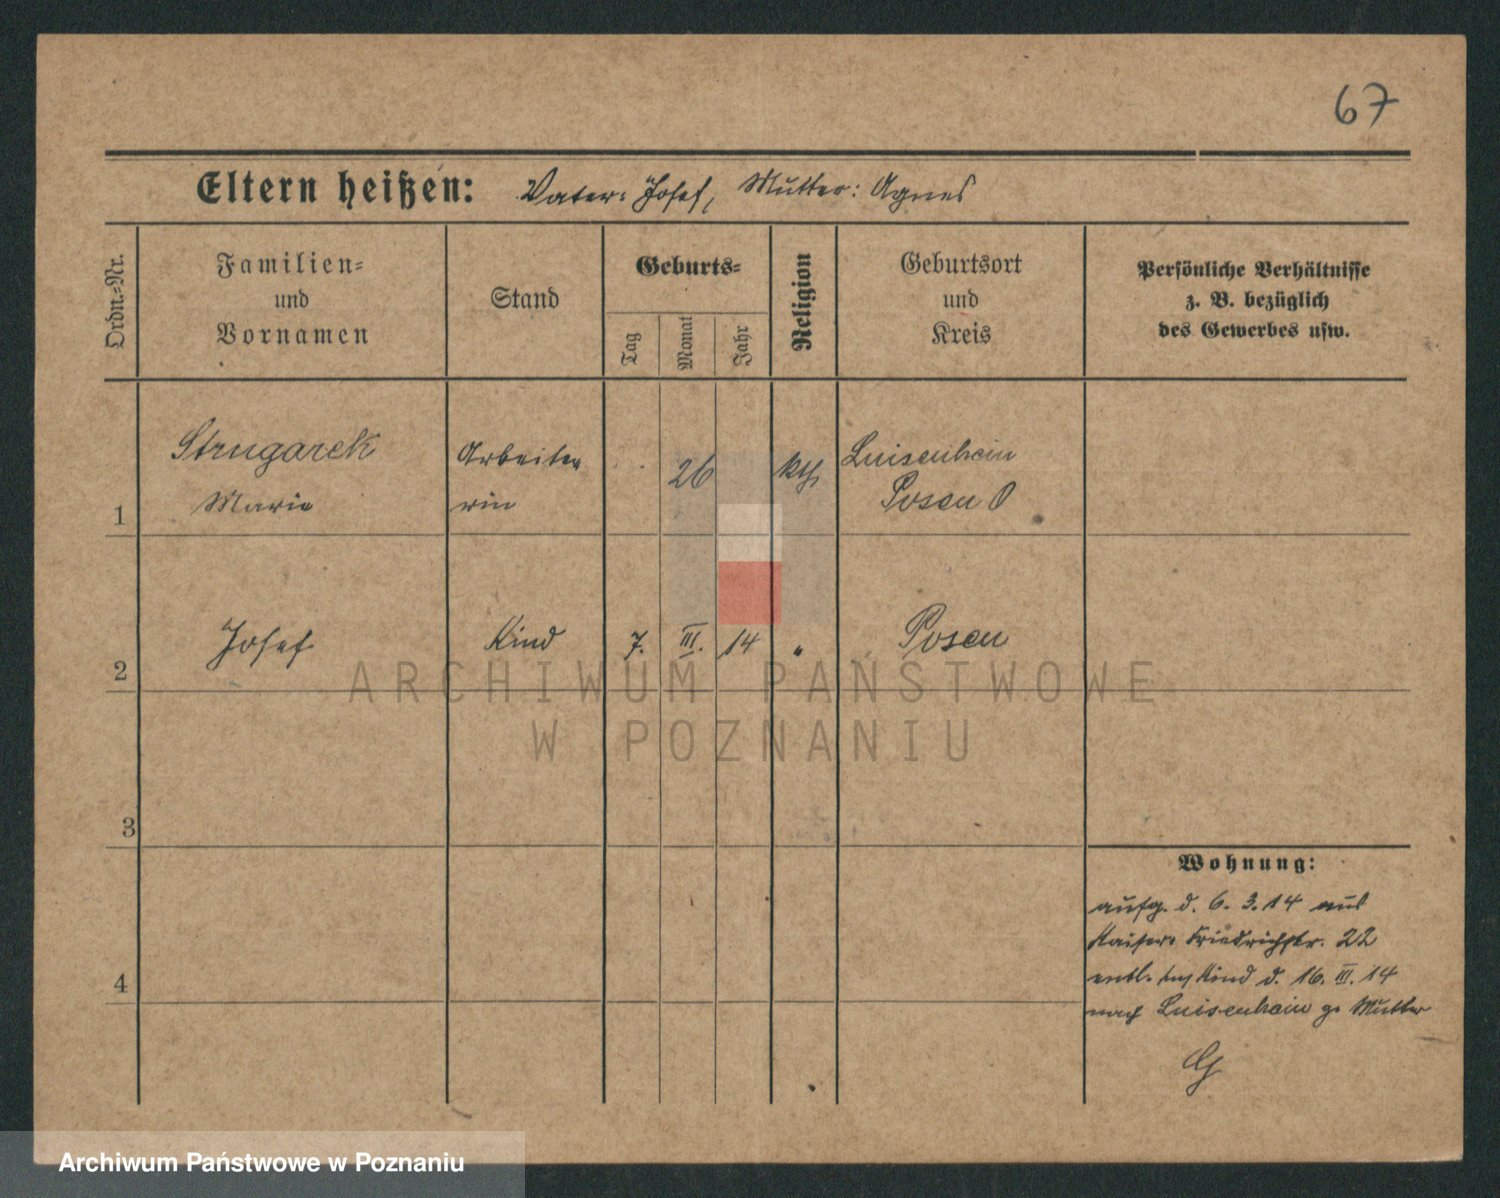 67
Eltern heißen: Vater: Josef, Mutter: Agnes
Ordn.-Nr.
Familien-
und
Vornamen
Stand
Geburts-
Tag
Monat
Jahr
Religion
Geburtsort
und
Kreis
Persönliche Verhältnisse
z. B. bezüglich
des Gewerbes usw.
1
Strugarek
Marie
Arbeite
rin
26
kth
Luisenhain
Posen O
2
Josef
Kind
7.
III.
14
"
Posen
3
4
Wohnung:
aufg. d. 6. 3. 14 aus
Kaiser Friedrichstr. 22
entl. Kind d. 16. III. 14
nach Luisenhain Mutter
G
ARCHIWUM PAŃSTWOWE
W POZNANIU
Archiwum Państwowe w Poznaniu